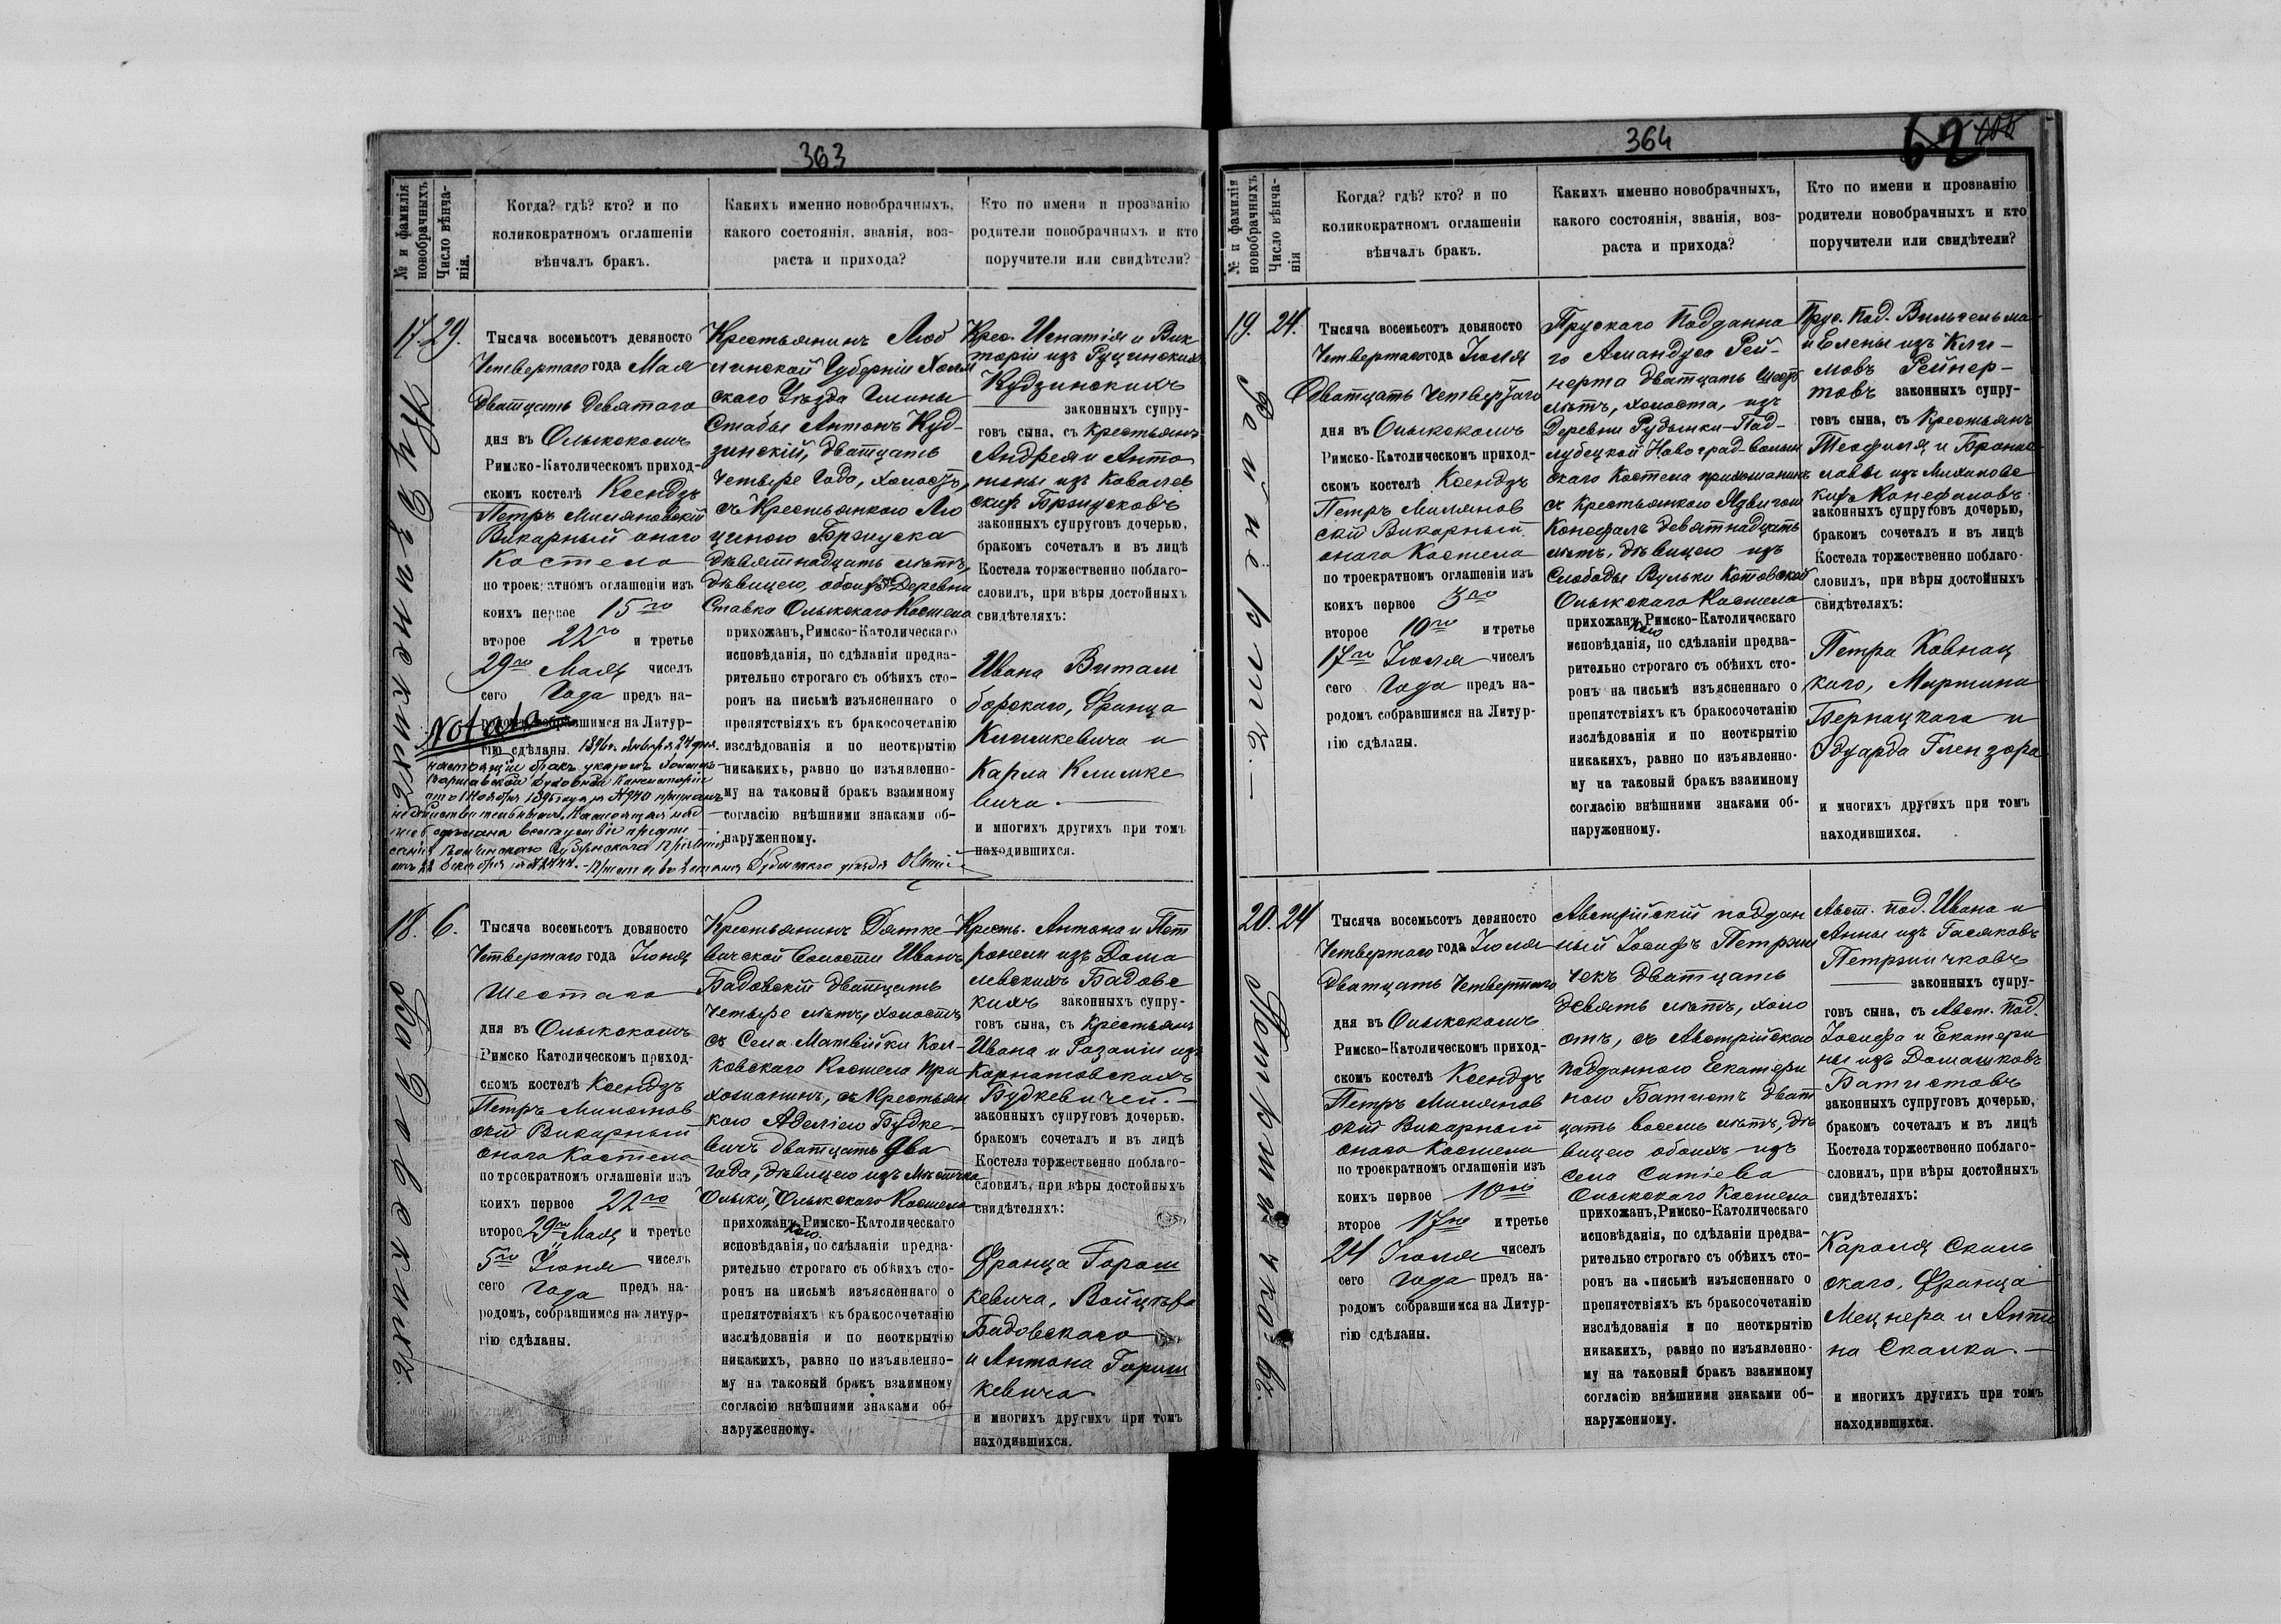 363
№ и фамилія
новобрачныхъ
Число вѣнча-
нія.
Когда? гдѣ? кто? и по
коликократномъ оглашеніи
вѣнчалъ бракъ.
Какихъ именно новобрачныхъ,
какого состоянія, званія, воз-
раста и прихода?
Кто по имени и прозванію
родители новобрачныхъ и кто
поручители или свидѣтели?
17.
29.
Кудзинскихъ
Тысяча восемьсотъ девяносто
Четвертаго года Мая
Дватцать Девятаго
дня въ Олыкскомъ
Римско-Католическомъ приход-
скомъ костелѣ Ксендзъ
Петръ Миляновскій
Викарный онаго
Костела
по троекратномъ оглашеніи изъ
коихъ первое 15го
второе 22го и третье
29го Мая чиселъ
сего Года предъ на-
родомъ собравшимся на Литур-
гію сдѣланы.
Notata
1896г. Января 24 дня
настоящій бракъ указомъ
Варшавской Духовной Консисторіи
Крестьянинъ Люб
линской Губерніи Холм
скаго Уѣзда Гмины
Ставы Антонъ Куд-
зинскій, Двадцать
Четыре Года, холостъ,
съ Крестьянкою Лю
циною Брзуска
Девятнадцать лѣтъ,
дѣвицею, обоихъ Деревни
Ставка Олыкскаго Костела
прихожанъ, Римско-Католическаго
исповѣданія, по сдѣланіи предва-
рительно строгаго съ обѣихъ сто-
ронъ на письмѣ изъясненнаго о
препятствіяхъ къ бракосочетанію
изслѣдованія и по неоткрытію
никакихъ, равно по изъявленно-
му на таковый бракъ взаимному
согласію внѣшними знаками об-
наруженному.
Крес. Игнатія и Вик
торіи изъ Руцинскихъ
Кудзинскихъ
законныхъ супру-
говъ сына, съ Крестьянъ
Андрея и Анто
нины изъ Ковалев
скихъ Брзусковъ
законныхъ супруговъ дочерью,
бракомъ сочеталъ и въ лицѣ
Костела торжественно поблаго-
словилъ, при вѣры достойныхъ
свидѣтеляхъ:
Ивана Витам
борскаго, Франца
Климкевича и
Карла Климке
вича.
и многихъ другихъ при томъ
находившихся.
18.
6.
Бадовскихъ.
Тысяча восемьсотъ девяносто
Четвертаго года Іюня
Шестаго
дня въ Олыкскомъ
Римско Католическомъ приход-
скомъ костелѣ Ксендзъ
Петръ Милянов
скій Викарный
онаго Костела
по троекратномъ оглашеніи изъ
коихъ первое 22го
второе 29го Мая и третье
5го Іюня чиселъ
сего Года предъ на-
родомъ, собравшимся на литур-
гію сдѣланы.
Крестьянинъ Дятке-
вичской Волости Иванъ
Бадовскій двадцать
Четыре лѣтъ, холостъ
съ Села Матвійки Кол-
ковскаго Костела при
хожанинъ, съ Крестьян
кою Аделіею Будке-
вичъ двадцать два
года, дѣвицею изъ Мѣстечка
Олыки, Олыкскаго Костела
прихожан.кою Римско-Католическаго
исповѣданія, по сдѣланіи предва-
рительно строгаго съ обѣихъ сто-
ронъ на письмѣ изъясненнаго о
препятствіяхъ къ бракосочетанію
изслѣдованія и по неоткрытію
никакихъ, равно по изъявленно-
му на таковый бракъ взаимному
согласію внѣшними знаками об-
наруженному.
Крестъ. Антона и Пет
ронели изъ Дома
левскихъ Бадовс
кихъ законныхъ супру-
говъ сына, съ Крестьянъ
Ивана и Розаліи изъ
Карнатовскихъ
Будкевичей.
законныхъ супруговъ дочерью,
бракомъ сочеталъ и въ лицѣ
Костела торжественно поблаго-
словилъ, при вѣры достойныхъ
свидѣтеляхъ:
Франца Горош
кевича, Войцѣха
Бадовскаго
и Антона Горош
кевича
и многихъ другихъ при томъ
находившихся.
364
62
№ и фамилія
новобрачныхъ
Число вѣнча-
нія
Когда? гдѣ? кто? и по
коликократномъ оглашеніи
вѣнчалъ бракъ.
Какихъ именно новобрачныхъ,
какого состоянія, званія, воз-
раста и прихода?
Кто по имени и прозванію
родители новобрачныхъ и кто
поручители или свидѣтели?
19.
24.
Тысяча восемьсотъ девяносто
Четвертаго года Іюля
Дватцать Четвертаго
дня въ Олыкскомъ
Римско-Католическомъ приход-
скомъ костелѣ Ксендзъ
Петръ Милянов
скій Викарный
онаго Костела
по троекратномъ оглашеніи изъ
коихъ первое 3го
второе 10го и третье
17го Іюля чиселъ
сего Года предъ на-
родомъ собравшимся на Литур-
гію сдѣланы.
Прускаго Подданна
го Амандуса Рей-
нерта двадцать шесть
лѣтъ, холоста, изъ
Деревни Рудынки-Под-
лубецкой Новоград-волын
скаго Костела прихожанинъ
съ Крестьянкою Ядвигою
Конефалъ девятнадцать
лѣтъ, дѣвицею изъ
Слободы Вульки Котовской
Олыкскаго Костела
прихожан.кою Римско-Католическаго
исповѣданія, по сдѣланіи предва-
рительно строгаго съ обѣихъ сто-
ронъ на письмѣ изъясненнаго о
препятствіяхъ къ бракосочетанію
изслѣдованія и по неоткрытію
никакихъ, равно по изъявленно-
му на таковый бракъ взаимному
согласію внѣшними знаками об-
наруженному.
Прус. Под. Вильгельма
и Елены изъ Кли-
мовъ Рейнер-
товъ законныхъ супру-
говъ сына, съ Крестьянъ
Теофиля и Бронис
лавы изъ Михаловс
кихъ Конефаловъ
законныхъ супруговъ дочерью,
бракомъ сочеталъ и въ лицѣ
Костела торжественно поблаго-
словилъ, при вѣры достойныхъ
свидѣтеляхъ:
Петра Ковнац
каго, Мартина
Бернацкаго и
Эдуарда Глензера
и многихъ другихъ при томъ
находившихся.
20.
24
Тысяча восемьсотъ девяносто
Четвертаго года Іюля
Двадцать Четвертаго
дня въ Олыкскомъ
Римско-Католическомъ приход-
скомъ костелѣ Ксендзъ
Петръ Милянов
скій Викарный
онаго Костела
по троекратномъ оглашеніи изъ
коихъ первое 10го
второе 17го и третье
24 Іюля чиселъ
сего Года предъ на-
родомъ собравшимся на Литур-
гію сдѣланы.
Австрійскій поддан
ный Іосифъ Петржи
чекъ двадцать
девять лѣтъ, холо
стъ, съ Австрійскою
подданною Екатери
ною Батистъ двад
цать восемь лѣтъ, дѣ
вицею обоихъ изъ
села Ситіева
Олыкскаго Костела
прихожанъ, Римско-Католическаго
исповѣданія, по сдѣланіи предва-
рительно строгаго съ обѣихъ сто-
ронъ на письмѣ изъясненнаго о
препятствіяхъ къ бракосочетанію
изслѣдованія и по неоткрытію
никакихъ, равно по изъявленно-
му на таковый бракъ взаимному
согласію внѣшними знаками об-
наруженному.
Авст. под. Ивана и
Анны изъ Гасяковъ
Петржичковъ
законныхъ супру-
говъ сына, съ Авст. под.
Іосифа и Екатери
ны изъ Домашковъ
Батистовъ
законныхъ супруговъ дочерью,
бракомъ сочеталъ и въ лицѣ
Костела торжественно поблаго-
словилъ, при вѣры достойныхъ
свидѣтеляхъ:
Кароля Скаль
скаго, Франца
Мецнера и Анто
на Скалки
и многихъ другихъ при томъ
находившихся.